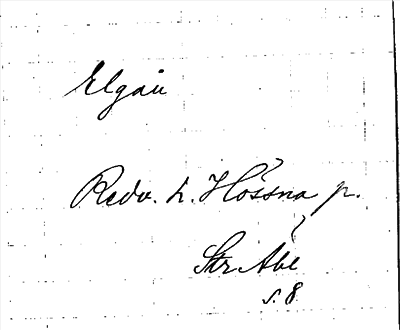 Elgån
Redv. t. Hössna p.
Skr Abl
s. 8